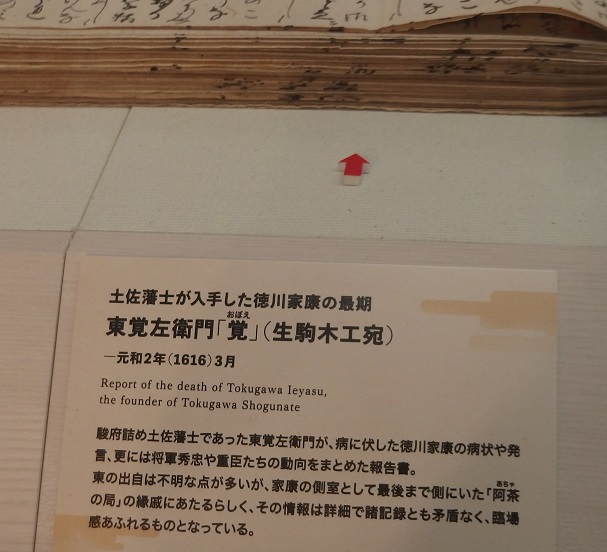 土佐藩士が入手した徳川家康の最期
東覚左衛門「覚」(生駒木工宛)
おぼえ
―元和2年(1616)3月
Report of the death of Tokugawa Ieyasu,
the founder of Tokugawa Shogunate
駿府詰め土佐藩士であった東覚左衛門が、病に伏した徳川家康の病状や発
言、更には将軍秀忠や重臣たちの動向をまとめた報告書。
東の出自は不明な点が多いが、家康の側室として最後まで側にいた「阿茶
あちゃ
の局」の縁戚にあたるらしく、その情報は詳細で諸記録とも矛盾なく、臨場
感あふれるものとなっている。